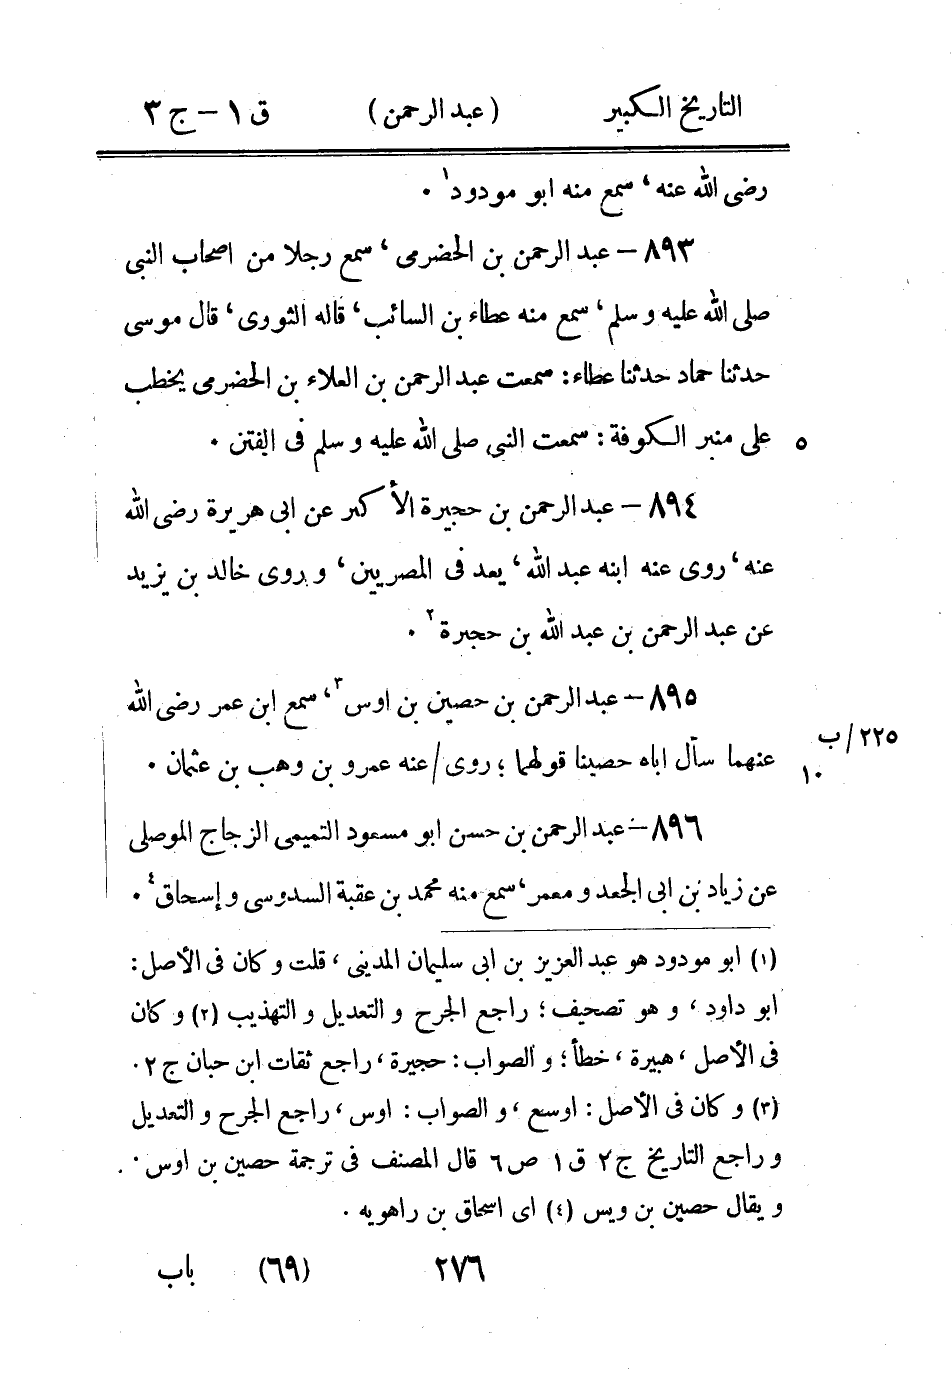 التاريخ الكبير (عبد الرحمن) ق ١ - ج ٣
رضى الله عنه، سمع منه ابو مودود١ ٠
٨٩٣ - عبد الرحمن بن الحضرمى، سمع رجلا من اصحاب النبى
صلى الله عليه و سلم، سمع منه عطاء بن السائب، قاله الثورى، قال موسى
حدثنا حماد حدثنا عطاء: سمعت عبد الرحمن بن العلاء بن الحضرمى يخطب
على منبر الكوفة: سمعت النبى صلى الله عليه و سلم فى الفتن ٠ ٥
٨٩٤ - عبد الرحمن بن حجيرة الأكبر عن ابى هريرة رضى الله
عنه، روى عنه ابنه عبد الله، يعد فى المصريين، و روى خالد بن يزيد
عن عبد الرحمن بن عبد الله بن حجيرة٢ ٠
٨٩٥ - عبد الرحمن بن حصين بن اوس٣، سمع ابن عمر رضى الله
٢٢٥/ب
عنهما سأل اباه حصينا قولهما؛ روى/عنه عمرو بن وهب بن عثمان ٠ ١٠
٨٩٦ - عبد الرحمن بن حسن ابو مسعود التميمى الزجاج الموصلى
عن زياد بن ابى الجعد و معمر، سمع منه محمد بن عقبة السدوسى و إسحاق٤ ٠
(١) ابو مودود هو عبد العزيز بن ابى سليمان المدينى، قلت و كان فى الأصل:
ابو داود، و هو تصحيف؛ راجع الجرح و التعديل و التهذيب (٢) و كان
فى الأصل، هبيرة، خطأ؛ و الصواب: حجيرة، راجع ثقات ابن حبان ج ٢ ٠
(٣) و كان فى الأصل: اوسع، و الصواب: اوس، راجع الجرح و التعديل
و راجع التاريخ ج ٢ ق ١ ص ٦ قال المصنف فى ترجمة حصين بن اوس ٠
و يقال حصين بن ويس (٤) اى اسحاق بن راهويه ٠
٢٧٦ (٦٩) باب